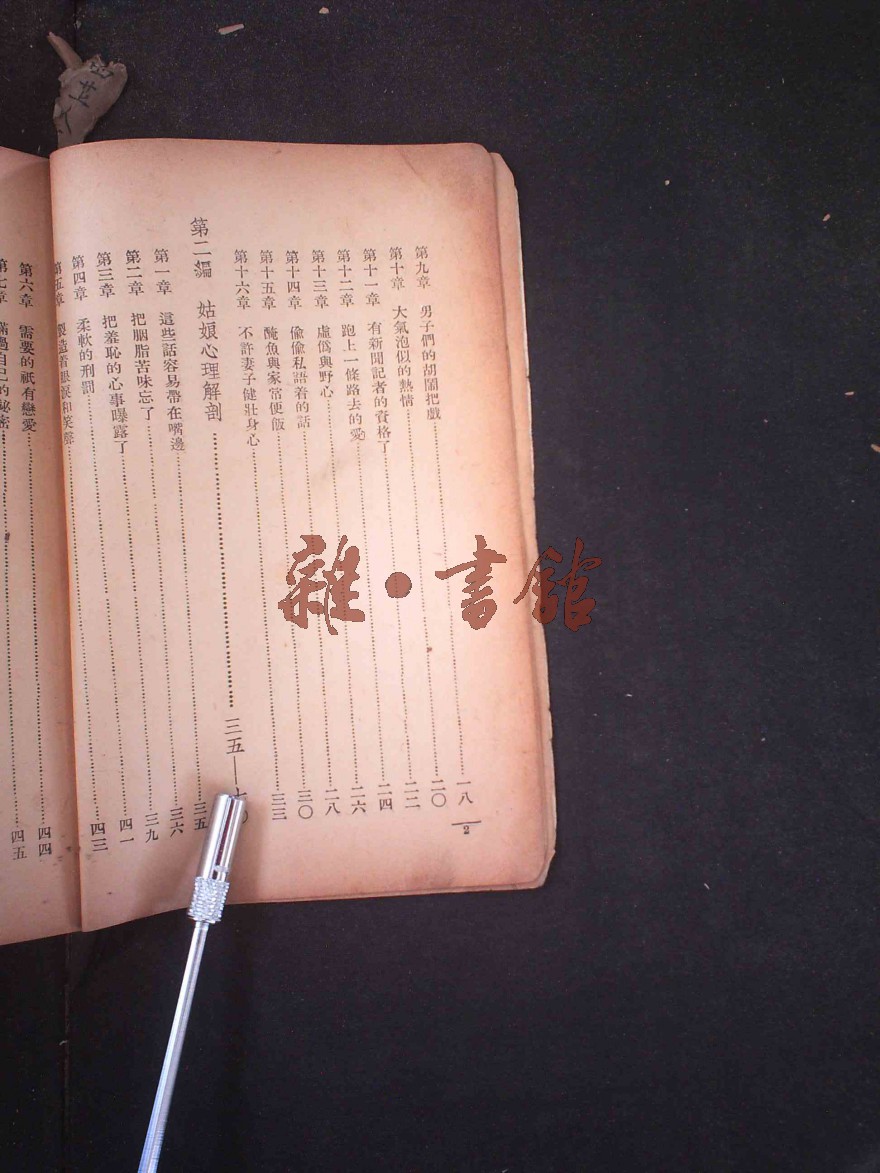 第九章 男子們的胡鬧把戲……一八
第十章 大氣泡似的熱情……二〇
第十一章 有新聞記者的資格了……二二
第十二章 跑上一條路去的愛……二四
第十三章 虛偽與野心……二六
第十四章 偷偷私語着的話……二八
第十五章 醃魚與家常便飯……三〇
第十六章 不許妻子健壯身心……三三
第二編 姑娘心理解剖……三五—七〇
第一章 這些話容易帶在嘴邊……三五
第二章 把胭脂苦味忘了……三六
第三章 把羞恥的心事曝露了……三九
第四章 柔軟的刑罰……四一
第五章 製造着眼淚和笑聲……四三
第六章 需要的祇有戀愛……四四
第七章 瞞過自己的秘密……四五
2
雜·書館